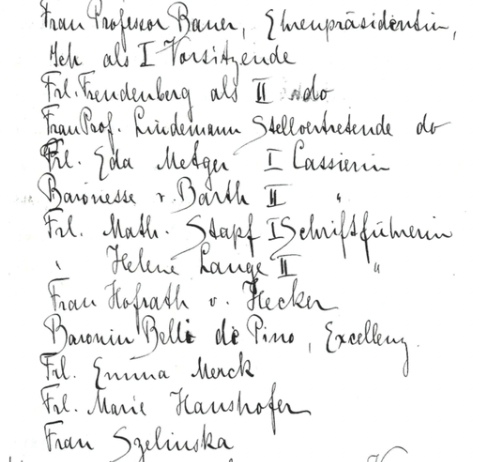 Frau Professor Bauer, Ehrenpräsidentin,
Ich als I Vorsitzende
Frl. Freudenberg als II do
Frau Prof. Lindemann Stellvertretende do
Frl. Eda Metzger I Cassierin
Baronesse v. Barth II "
Frl. Math. Stapf I Schriftführerin
" Helene Lange II "
Frau Hofrath v. Hecker
Baronin Belli de Pino, Excellenz
Frl. Emma Merck
Frl. Marie Haushofer
Frau Szelinska